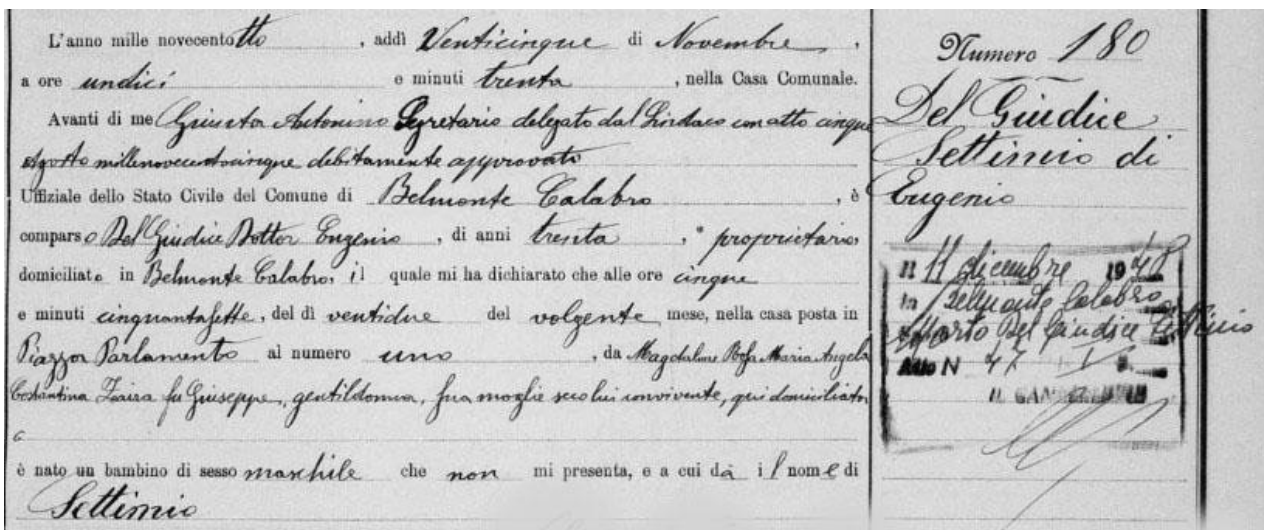 L'anno mille novecentotto, addì Venticinque di Novembre,
a ore undici e minuti trenta, nella Casa Comunale.
Avanti di me Giunta Antonino Segretario delegato dal Sindaco con atto cinque
Agosto millenovecentocinque debitamente approvato
Uffiziale dello Stato Civile del Comune di Belmonte Calabro, è
comparso Del Giudice Dottor Eugenio, di anni trenta, proprietario
domiciliato in Belmonte Calabro, il quale mi ha dichiarato che alle ore cinque
e minuti cinquantasette, del dì ventidue del volgente mese, nella casa posta in
Piazza Parlamento al numero uno, da Magdalone Rosa Maria Angela
Costantina Zaira fu Giuseppe, gentildonna, sua moglie seco lui convivente, qui domiciliata
è nato un bambino di sesso maschile che non mi presenta, e a cui dà il nome di
Settimio
Numero 180
Del Giudice
Settimio di
Eugenio
Il 11 dicembre 1948
in Belmonte Calabro
è morto Del Giudice Settimio
Atto N 47 I